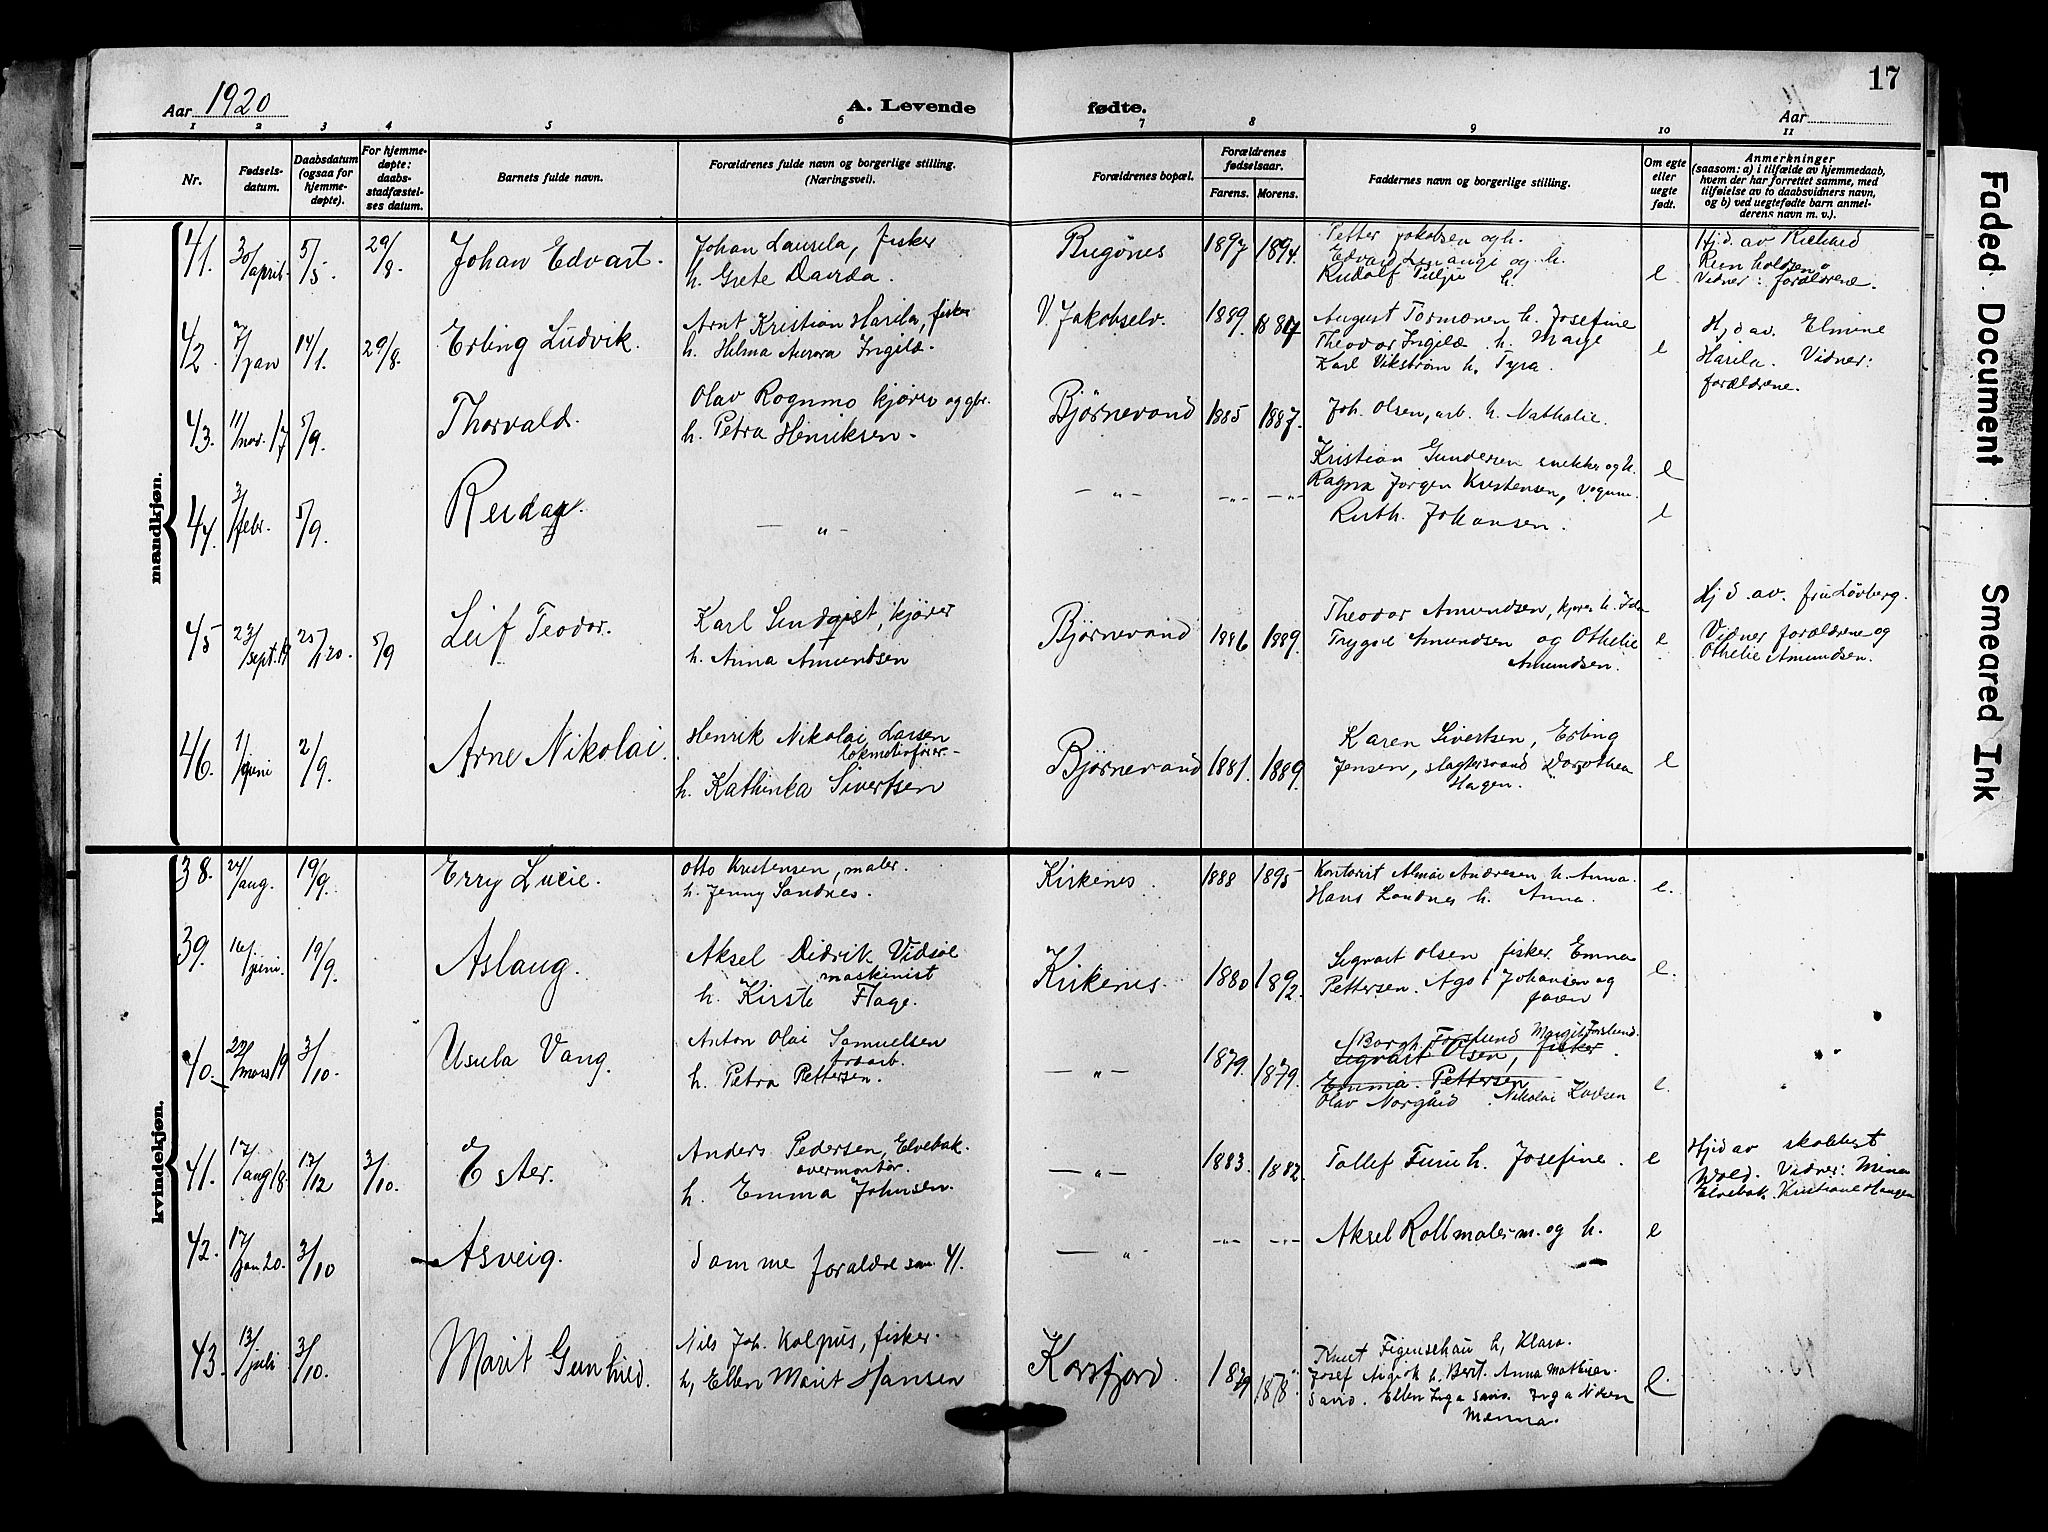 17
Aar 1920 A. Levende fødte. Aar
1 2 3 4 5 6 7 8 9 10 11
Nr. Fødsels-
datum. Daabsdatum
(ogsaa for
hjemme-
døpte). For hjemme-
døpte:
daabs-
stadfæstel-
ses datum. Barnets fulde navn. Forældrenes fulde navn og borgerlige stilling.
(Næringsvei). Forældrenes bopæl. Forældrenes
fødselsaar.
Farens. Morens. Faddernes navn og borgerlige stilling. Om egte
eller
uegte
født. Anmerkninger
(saasom: a) i tilfælde av hjemmedaab,
hvem der har forrettet samme, med
tilføielse av to daabsvidners navn,
og b) ved uegtefødte barn anmel-
derens navn m. v.).
mandkjøn.
41. 30/april. 5/5. 29/8. Johan Edvart. Johan Laurila, fisker
h. Grete Davida. Bugönes 1897 1894. Petter Jakobsen og h.
Edvard og h.
Rudolf h. e Hjd. av Richard
Reinholdsen
Vidner: forældrene.
42. /jan 14/1. 29/8. Erling Ludvik. Arnt Kristian Harila, fisker
h. Helma Aurora Ingilæ. V. Jakobselv. 1889. 1884 August Tormonen h. Josefine
Theodor Ingelæ h. Marje
Karl Vikstrøm h. Tyra. e Hjd av. Elmine
Harila. Vidner:
forældrene.
43. 11/nov. 17 5/9. Thorvald. Olav Rognmo kjører og gbr.
h. Petra Henriksen. Bjørnevand 1885 1887. Joh. Olsen, arb. h. Nathalie.
Kristian Gundersen snekker og h. e
44. 3/febr. 5/9. Reidar. — „ — — „ — — „ — — „ — Ragna Jørgen Kristensen,
Ruth. Johansen. e
45 23/sept. 19 25/1 20. 5/9 Leif Teodor. Karl Lindqist, kjører
h. Anna Amundsen Bjørnevand 1886 1889. Theodor Amundsen, kjører h. Ida
Trygve Amundsen og Othelie
Amundsen. e Hjd. av. fru Løvberg.
Vidner forældrene og
Othelie Amundsen.
46. 1/juni 2/9. Arne Nikolai. Henrik Nikolai Larsen
lokmotivfører
h. Kathinka Sivertsen Bjørnevand 1881. 1889. Karen Sivertsen, Erling
Jensen, slagtersvand Dorothea
Hagen. e
kvindekjøn.
38. 24/aug. 19/9. Erry Lucie. Otto Kristensen, maler.
h. Jenny Sandnes. Kirkenes. 1888 1895 Kontorist Almar Andresen h. Anna.
Hans Sandnes h. Anna. e.
39. 16/juni. 19/9. Aslaug. Aksel Didrik Vidsöe
maskinist
h. Kirste Flage. Kirkenes. 1880 1892. Sigvart Olsen fisker. Emma
Pettersen. Agot Johansen og
faren e.
40. 22/mars 19 3/10. Usula Vang. Anton Olai Samuelsen
h. Petra Pettersen. — „ — 1879. 1879. Borgh. Forslund Margit Forslund.
Sigvart Olsen, fisker
Emma Pettersen
Olav Norgård. Nikolai e.
41. 17/aug 18. 17/12 3/10. Ester. Anders Pedersen, Elvebak.
overmontör.
h. Emma Johnsen. — „ — 1883. 1882. Tollef Furu h. Josefine. e Hjd av skolbest
Wold. Vidner: Mina
Elvebak Kristiane Haugen
42. 17/jan 20. 3/10 Asveig. Samme foraldre som 41. — „ — — „ — — „ — Aksel Rollmoles m. og h. e
43. 13/juli 3/10. Marit Gunhild. Nils Joh. Kolpus, fisker.
h, Ellen Marit Hansen Korsfjord. 1879 1878 Knut Figenschau h, Klara.
Josef h. Berit. Anna Mathisen
Savio. Ellen Inga Savio. Inga Nilsen
Menna. e.
Faded Document
Smeared Ink